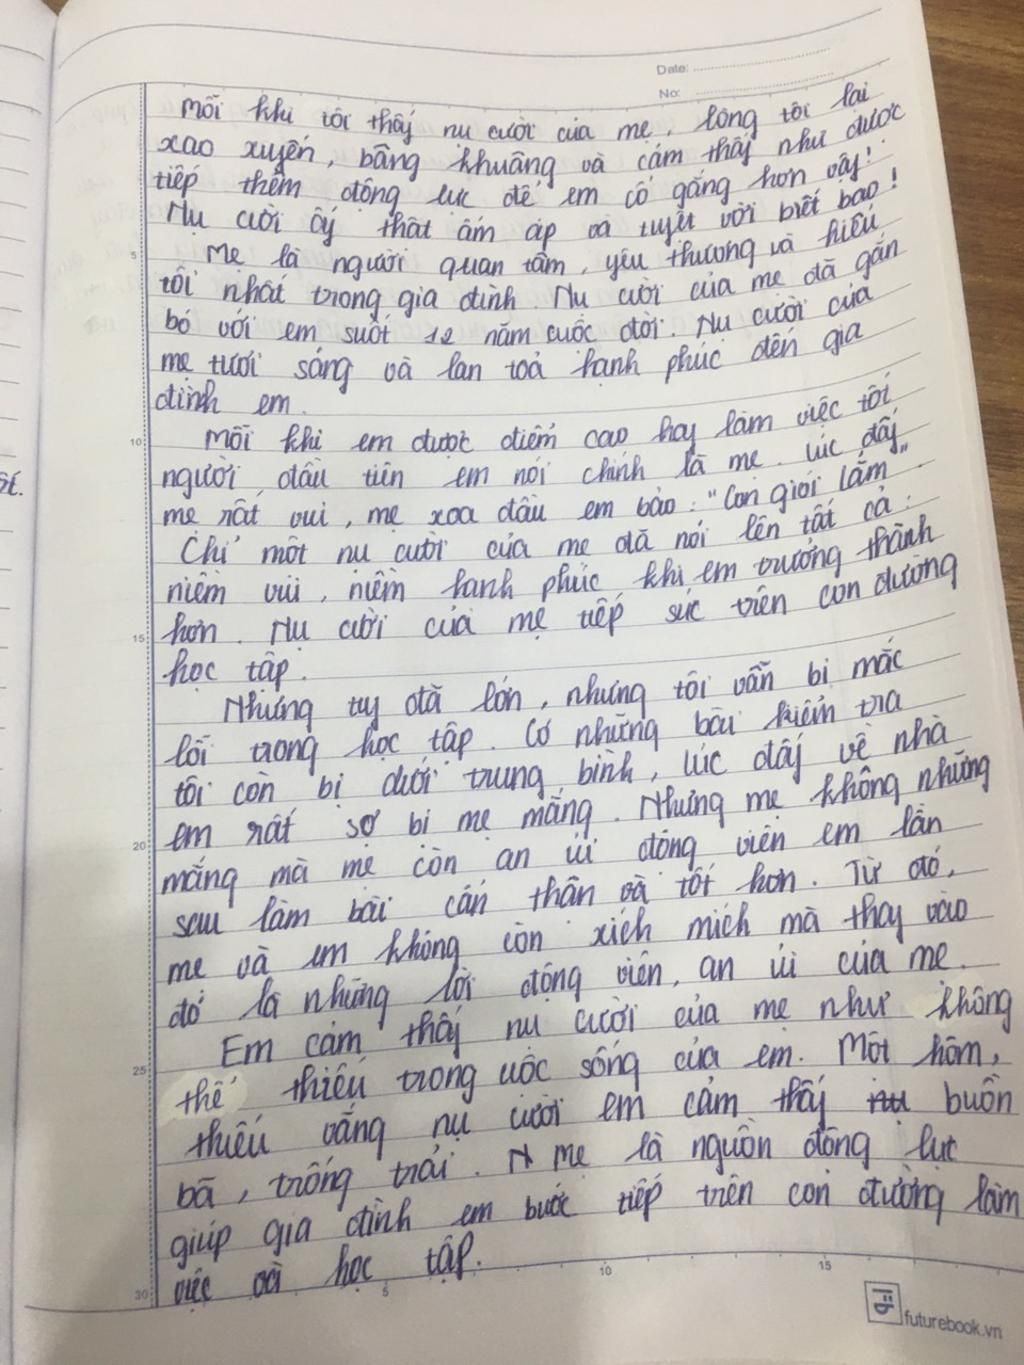 Date:
No:
Mỗi khi tôi thấy nụ cười của mẹ, lòng tôi lại
xao xuyến, bâng khuâng và cảm thấy như được
tiếp thêm động lực để em cố gắng hơn vậy!
Nụ cười ấy thật ấm áp và tuyệt vời biết bao!
5
Mẹ là người quan tâm, yêu thương và hiểu
tôi nhất trong gia đình. Nụ cười của mẹ đã gắn
bó với em suốt 12 năm cuộc đời. Nụ cười của
mẹ tươi sáng và lan toả hạnh phúc đến gia
đình em.
10
Mỗi khi em được điểm cao hay làm việc tốt
người đầu tiên em nói chính là mẹ. Lúc đấy
mẹ rất vui, mẹ xoa đầu em bảo: "Con giỏi lắm"
Chỉ một nụ cười của mẹ đã nói lên tất cả:
niềm vui, niềm hạnh phúc khi em trưởng thành
hơn. Nụ cười của mẹ tiếp sức trên con đường
15
học tập.
Nhưng tuy đã lớn, nhưng tôi vẫn bị mắc
lỗi trong học tập. Có những bài kiểm tra
tôi còn bị dưới trung bình, lúc đấy về nhà
em rất sợ bị mẹ mắng. Nhưng mẹ không những
20
mắng mà mẹ còn an ủi động viên em lần
sau làm bài cẩn thân và tốt hơn. Từ đó,
mẹ và em không còn xích mích mà thay vào
đó là những lời động viên, an ủi của mẹ.
Em cảm thấy nụ cười của mẹ như không
25
thể thiếu trong uộc sống của em. Một hôm,
thiếu vắng nụ cười em cảm thấy buồn
bã, trống trải. Mẹ là nguồn động lực
giúp gia đình em bước tiếp trên con đường làm
việc và học tập.
30
5
10
15
futurebook.vn